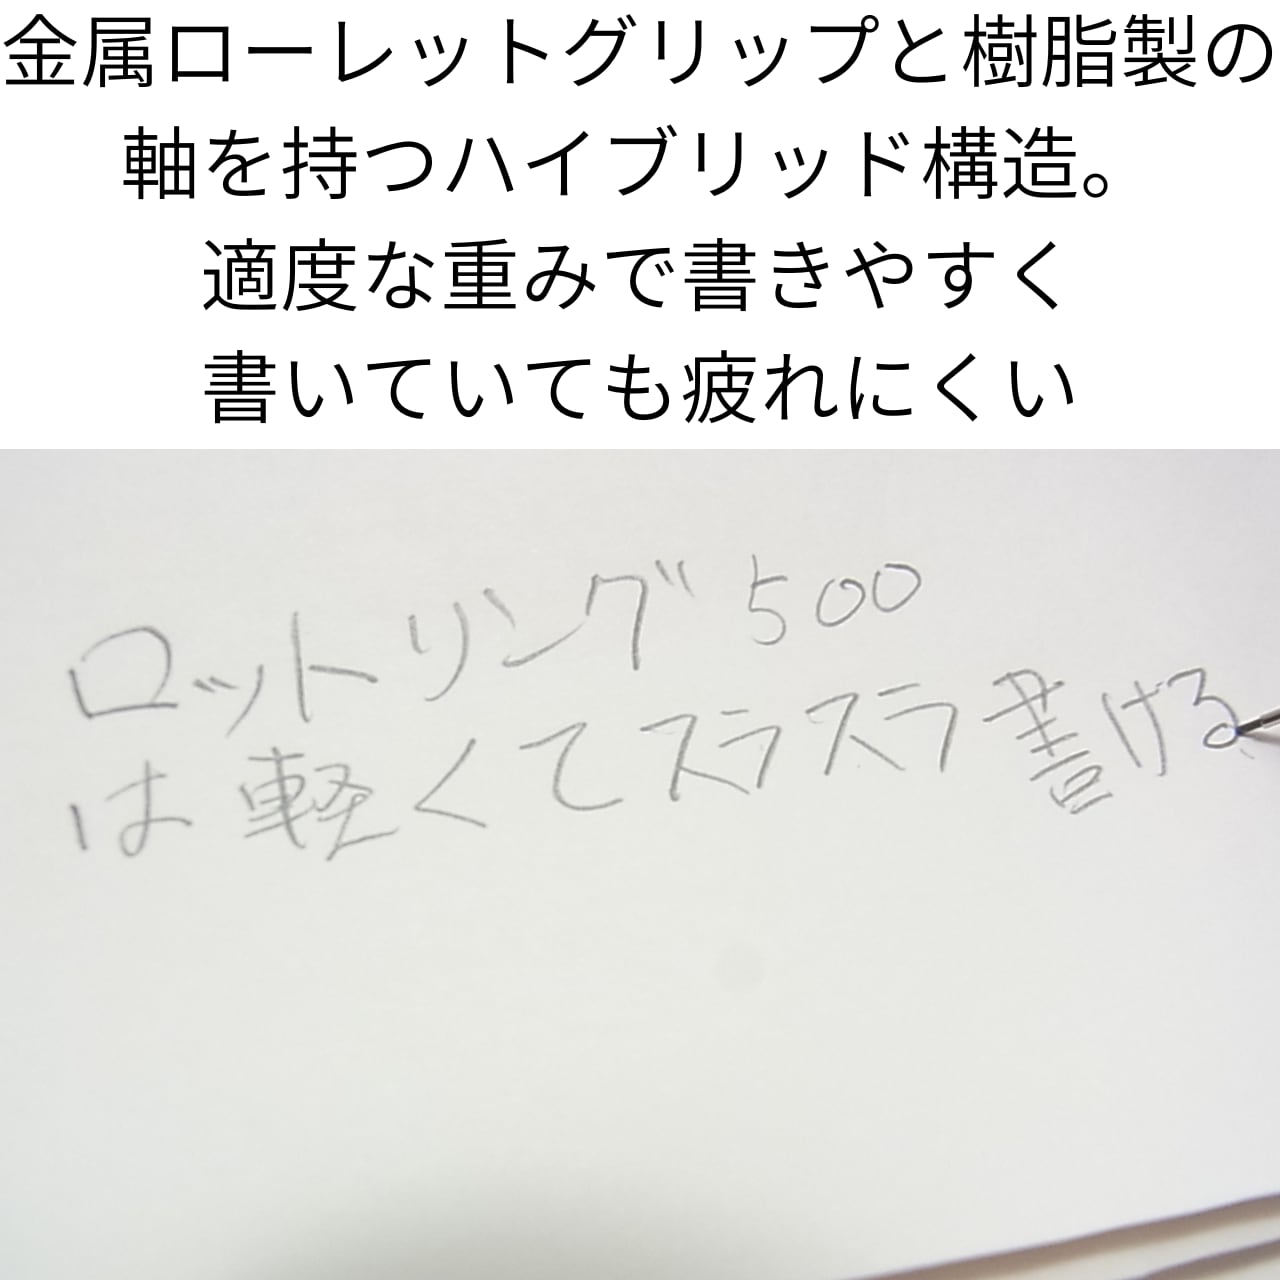 金属ローレットグリップと樹脂製の
軸を持つハイブリッド構造。
適度な重みで書きやすく
書いていても疲れにくい
ロットリング500
は軽くてスラスラ書ける